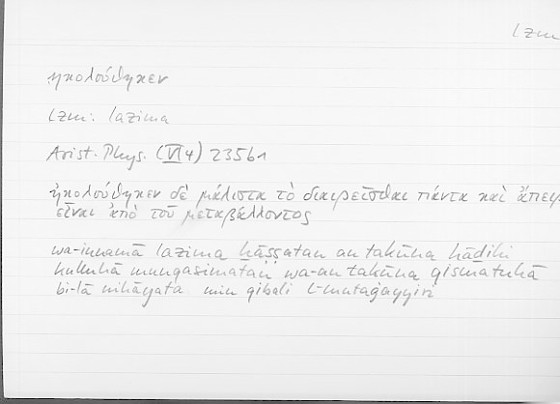 lzm
ἠκολούθηκεν
lzm: lazima
Arist. Phys. (VI 4) 235b1
ἠκολούθηκεν δὲ μάλιστα τὸ διαιρεῖσθαι πάντα καὶ ἄπειρ
εἶναι ἀπὸ τοῦ μεταβάλλοντος
wa-innamā lazima ḫāṣṣatan an takūna hāḏihi
kulluhā munqasimatan wa-an takūna qismatuhā
bi-lā nihāyata min qibali l-mutaġayyiri